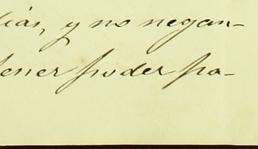 lias, y no negan-
tener poder pa-